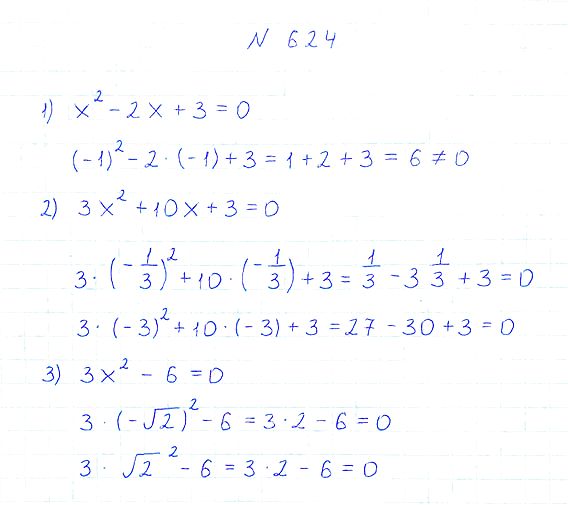 N 624
1) x² - 2x + 3 = 0
(-1)² - 2 · (-1) + 3 = 1 + 2 + 3 = 6 ≠ 0
2) 3x² + 10x + 3 = 0
3 · (-1/3)² + 10 · (-1/3) + 3 = 1/3 - 3 1/3 + 3 = 0
3 · (-3)² + 10 · (-3) + 3 = 27 - 30 + 3 = 0
3) 3x² - 6 = 0
3 · (-√2)² - 6 = 3 · 2 - 6 = 0
3 · √2² - 6 = 3 · 2 - 6 = 0